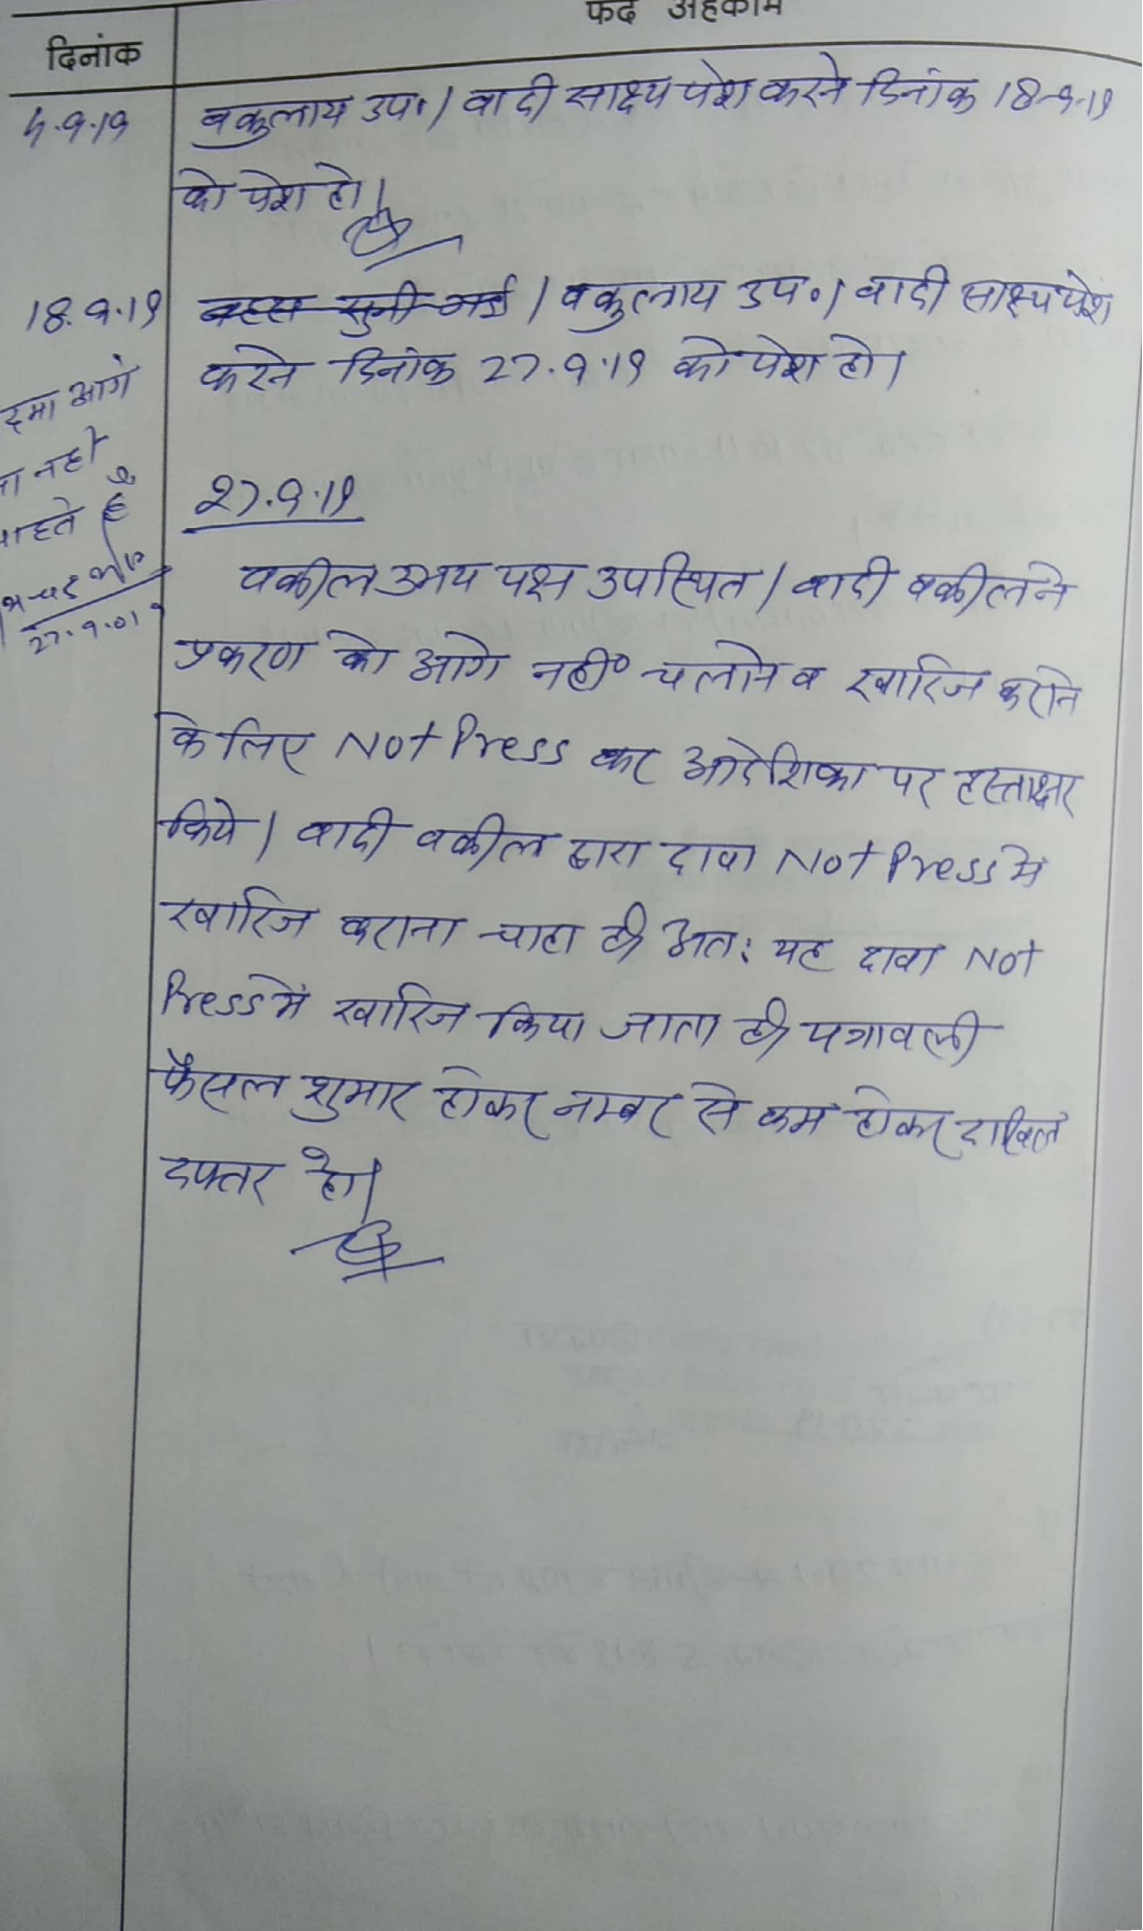 फर्द अहकाम
दिनांक
4.9.19 वकुलाय उप.। वादी साक्ष्य पेश करने दिनांक 18-9-19
को पेश हो।
18.9.19 बहस सुनी गई। वकुलाय उप०। वादी साक्ष्य पेश
करने दिनांक 27.9.19 को पेश हो।
आगे
नहीं
है
27.9.01
27.9.19
वकील उभय पक्ष उपस्थित। वादी वकील ने
प्रकरण को आगे नहीं चलाने व खारिज कराने
के लिए Not Press कर आदेशिका पर हस्ताक्षर
किये। वादी वकील द्वारा दावा Not Press में
खारिज कराना चाहा है। अतः यह दावा Not
Press में खारिज किया जाता है। पत्रावली
फैसल शुमार होकर नम्बर से कम होकर दाखिल
दफ्तर हो।